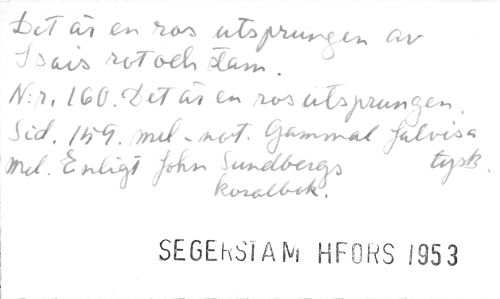 Det är en ros utsprungen av
Isais rot och stam.
N:r. 160. Det är en ros utsprungen.
Sid. 159. mel-not. Gammal julvisa
Mel. Enligt John Sundbergs tysk.
koralbok.
SEGERSTAM HFORS 1953